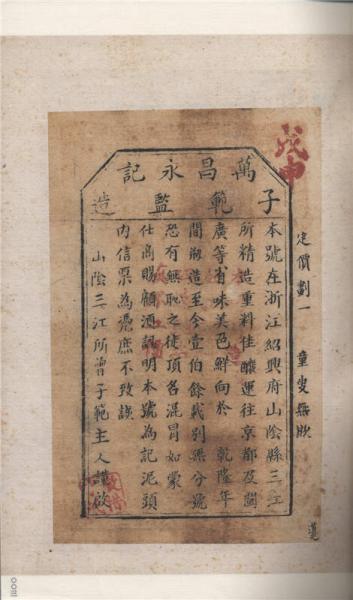 戊申
定價劃一 童叟無欺
萬昌永記
子範監造
本號在浙江紹興府山陰縣三江
所精造重料佳釀運往京都及閩
廣等省味美色鮮向於 乾隆年
間造至今壹伯餘載別無分號
恐有無恥之徒頂名混冒如蒙
仕商賜顧認明本號為記泥頭
內信票為憑庶不致誤
山陰三江所曾子範主人謹啟